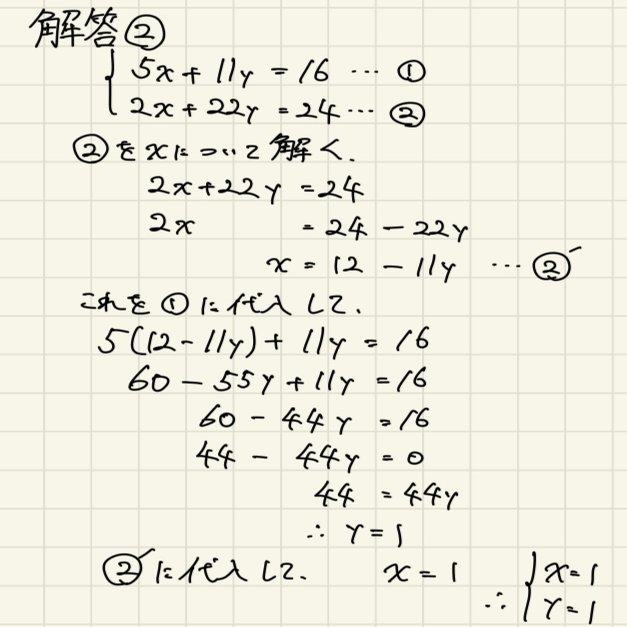 解答②
5x + 11y = 16 … ①
2x + 22y = 24 … ②
②をxについて解く.
2x+22y = 24
2x = 24 - 22y
x = 12 - 11y … ②´
これを①に代入して.
5(12-11y) + 11y = 16
60 - 55y + 11y = 16
60 - 44y = 16
44 - 44y = 0
44 = 44y
∴ y = 1
②´に代入して. x = 1
∴ { x=1
y=1